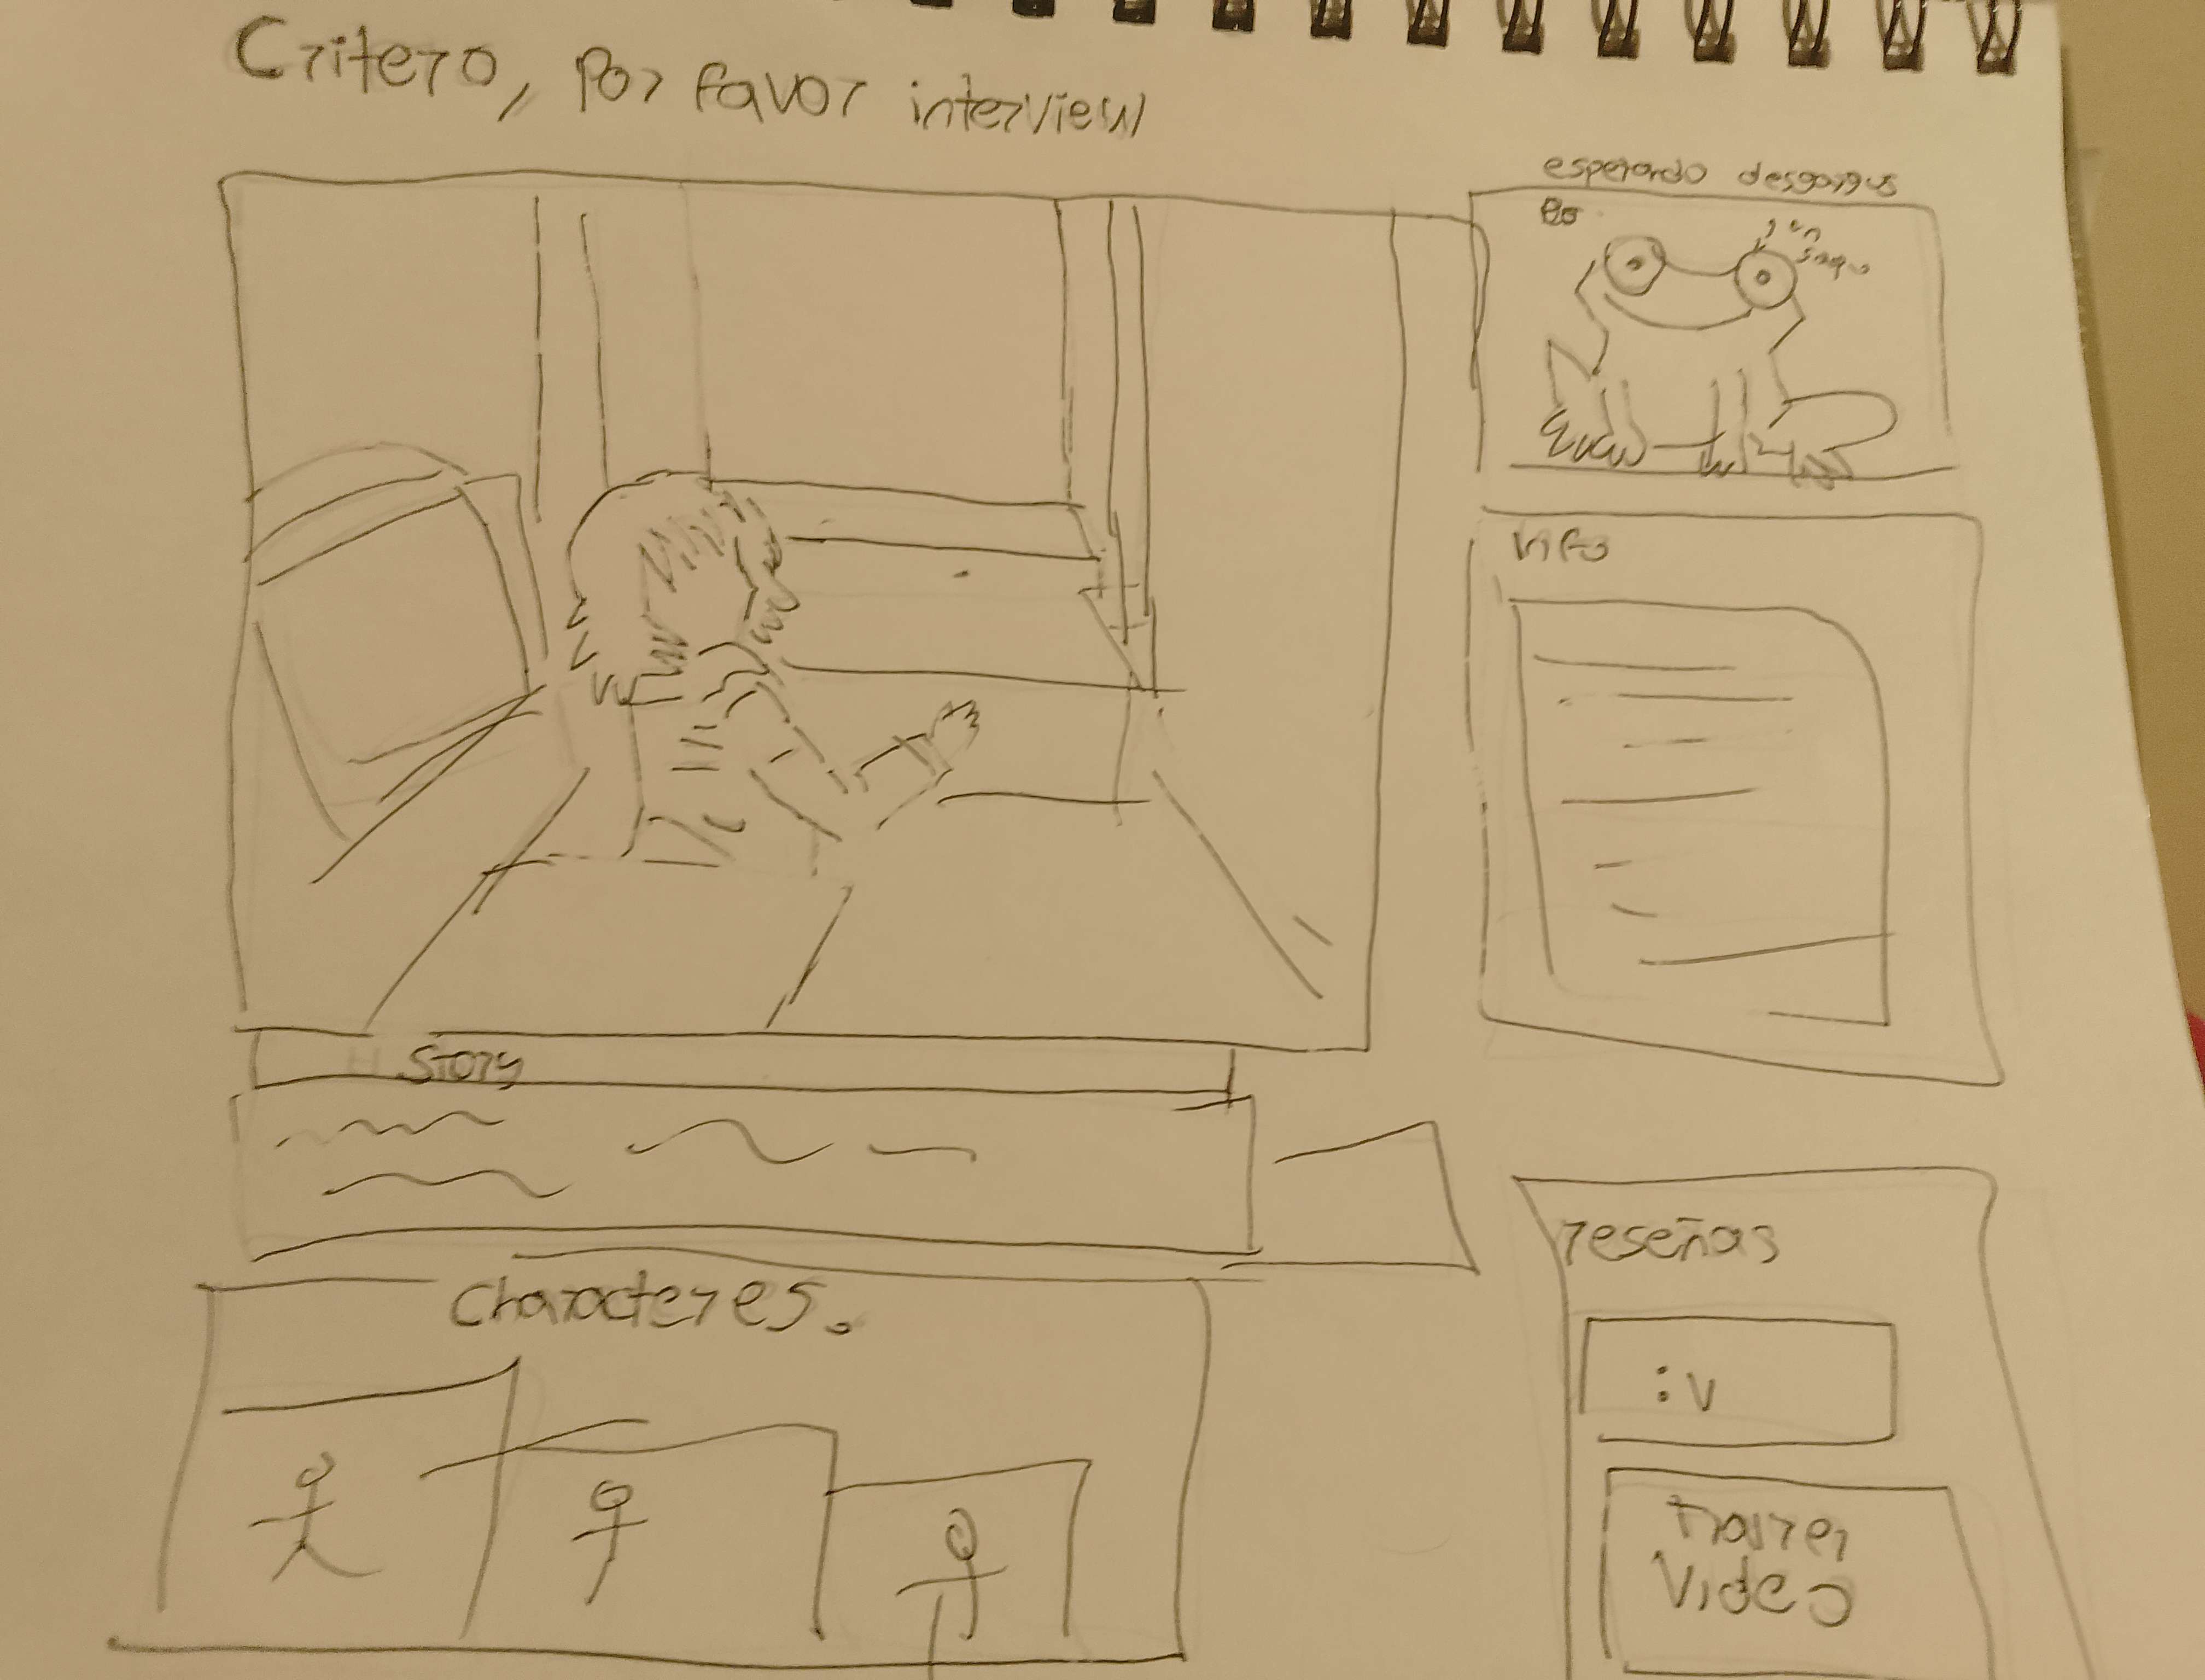 Critero, Por favor interview
esperando
Info
Story
Characteres.
reseñas
:v
Trailer
Video